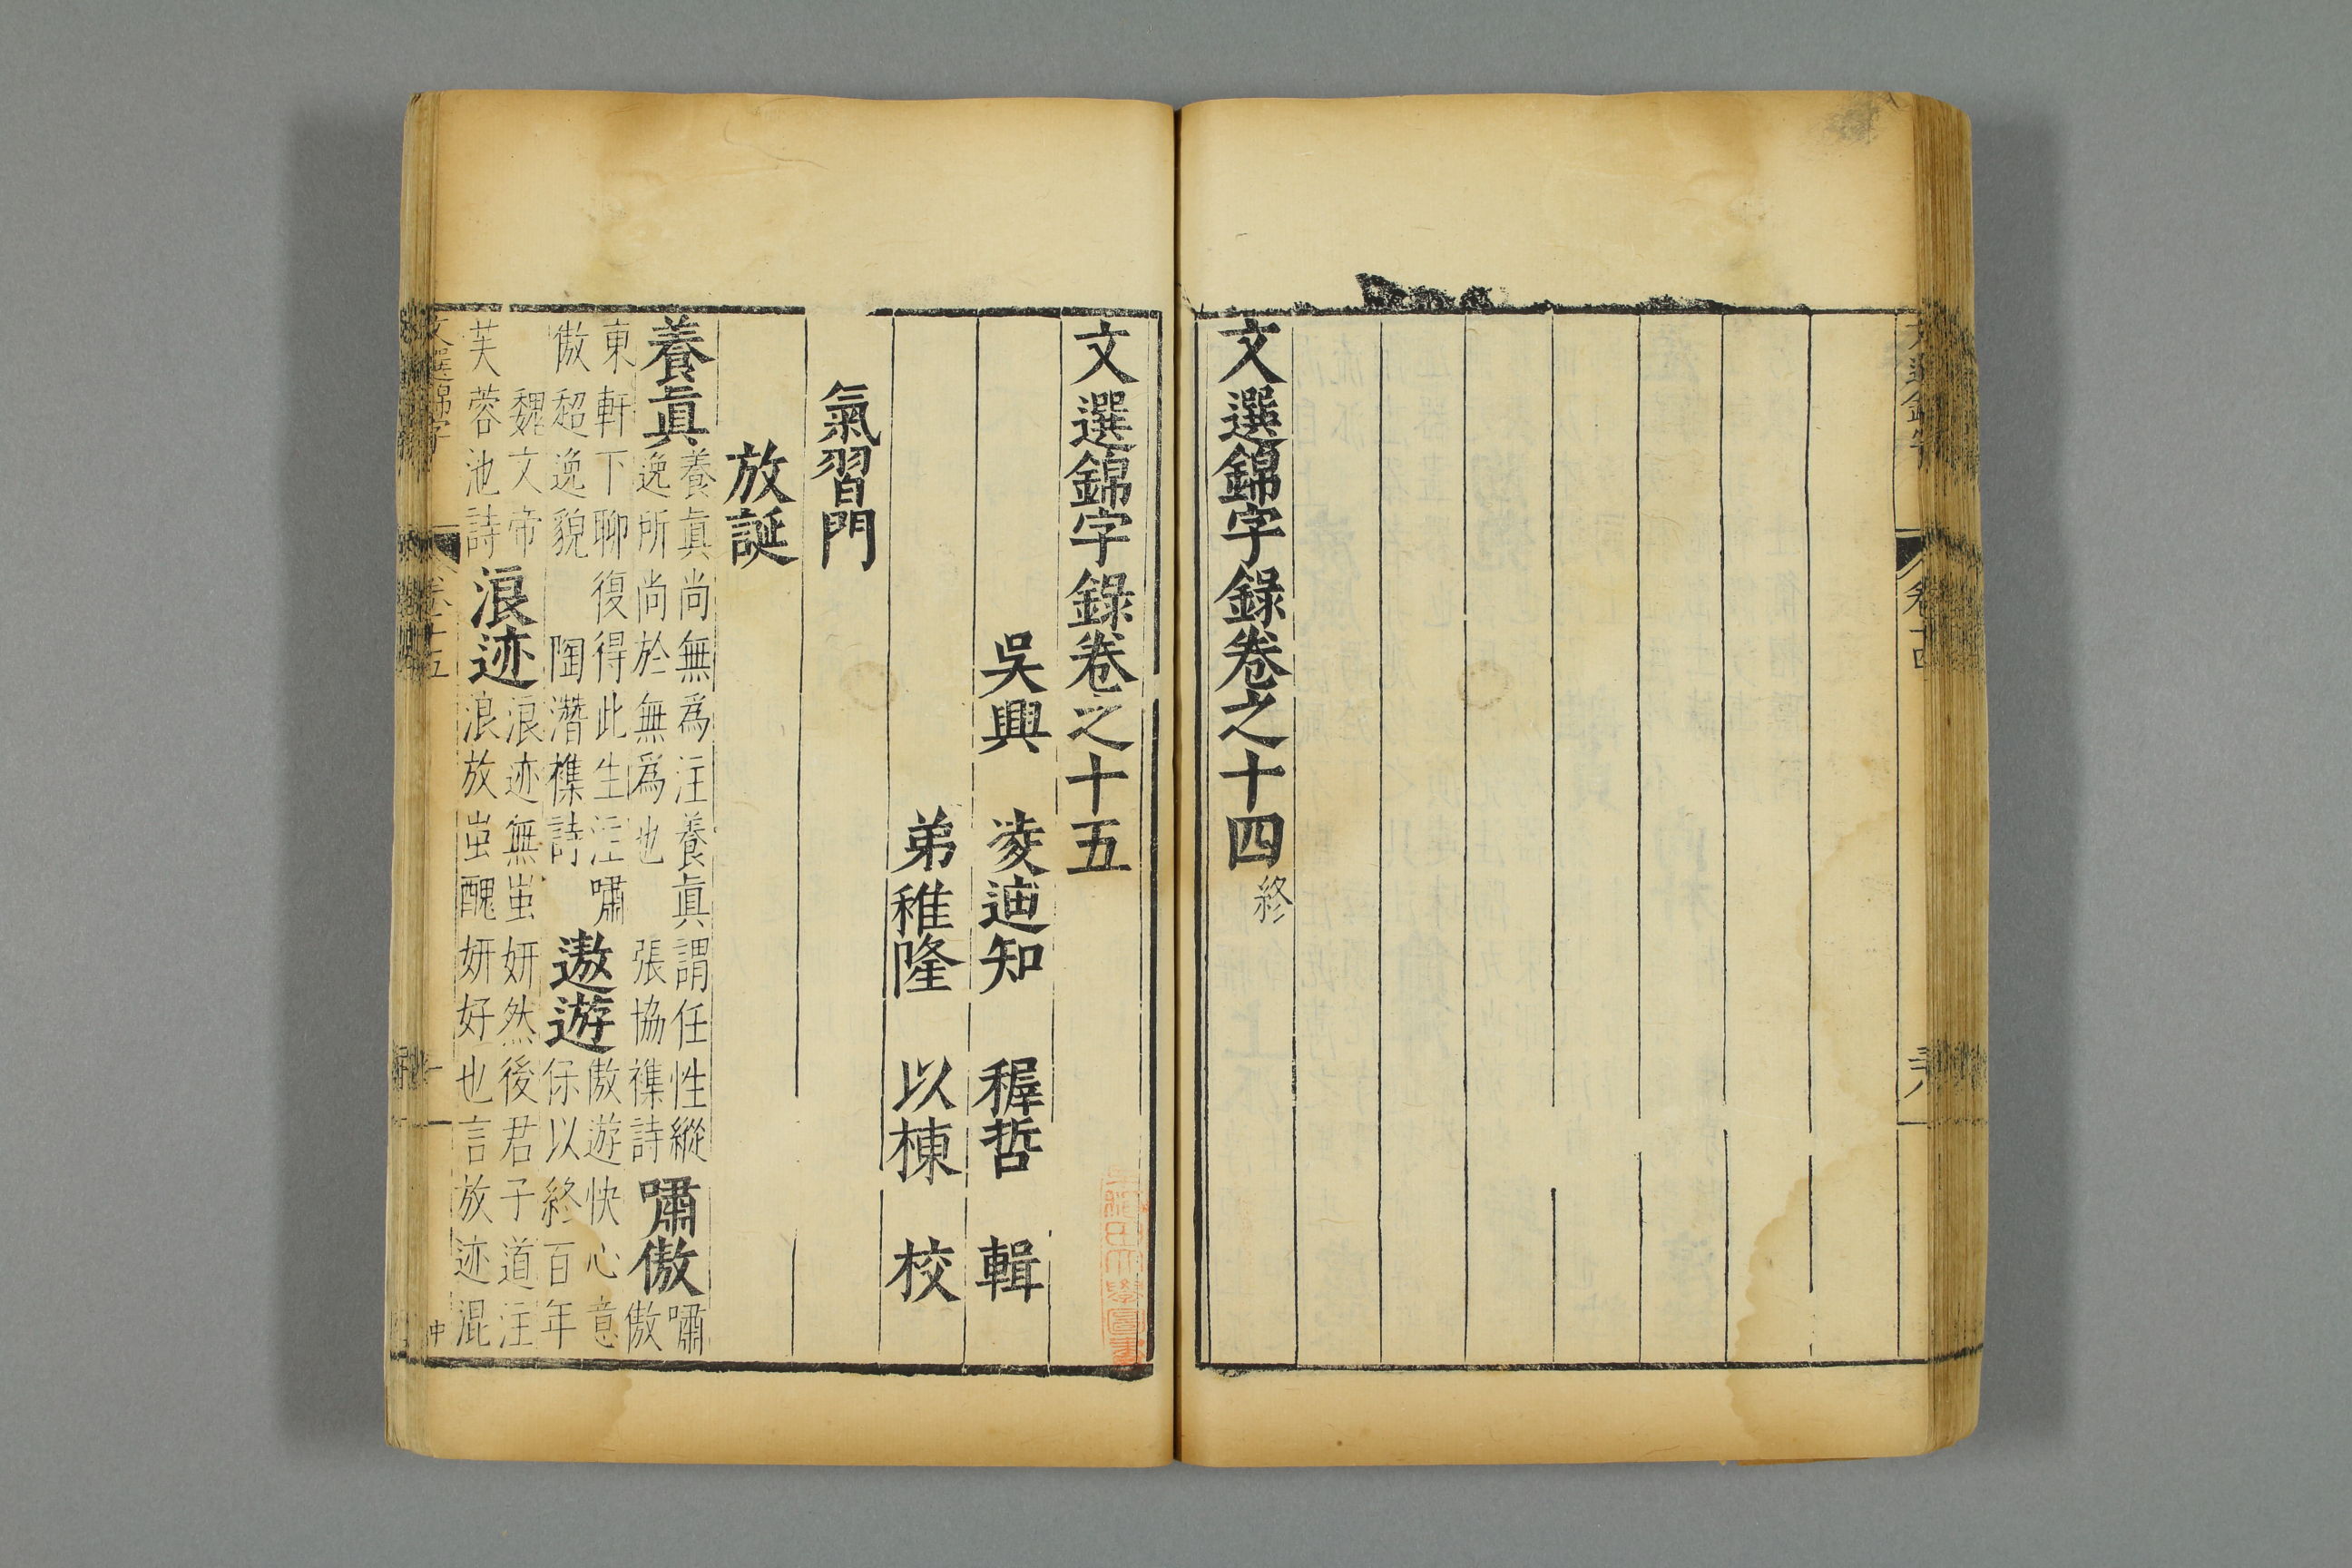 文選錦字錄卷之十四終
文選錦字錄卷之十五
吳興 凌迪知 穉哲 輯
弟稚隆 以棟 校
氣習門
放誕
養眞 養眞尚無爲注養眞謂任性縱逸所尚於無爲也 張協襍詩 嘯傲 嘯傲
東軒下聊復得此生注嘯傲超逸貌 陶潛襍詩 遨遊 傲遊快心意保以終百年
魏文帝芙蓉池詩 浪迹 浪迹無蚩妍然後君子道注浪放蚩醜妍好也言放迹混